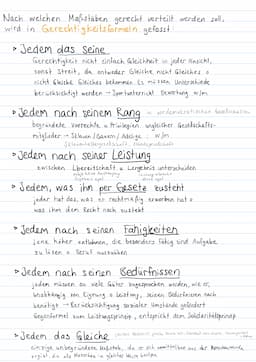 Nach welchen Maßstäben gerecht verteilt werden soll,
wird in Gerechtigkeitsformeln gefasst
▹ Jedem das Seine
Gerechtigkeit nicht einfach Gleichheit in jeder Hinsicht,
sonst Streit, da entweder Gleiche nicht Gleiches o
nicht Gleiche Gleiches bekommen. Es müssen Unterschiede
berücksichtigt werden → Sportunterricht Bewertung w/m
▹ Jedem nach seinem Rang in vordemokratischen Gesellschaften
begründete Vorrechte u Privilegien ungleicher Gesellschafts-
mitglieder → Sklaven/Bauern/Adelige : w/m
▹ Jedem nach seiner Leistung
zwischen Lbereitschaft u Lergebnis unterscheiden
▹ Jedem, was ihm per Gesetz zusteht
jeder hat das, was er rechtmäßig erworben hat o
was ihm dem Recht nach zusteht
▹ Jedem nach seinen Fähigkeiten
jene höher entlohnen, die besonders fähig sind Aufgabe
zu lösen o Beruf ausüben
▹ Jedem nach seinen Bedürfnissen
jedem müssen so viele Güter zugesprochen werden, wie er,
unabhängig von Eignung o Leistung, seinen Bedürfnissen nach
benötigt → Berücksichtigung sozialer Umstände gefordert
Gegenformel zum Leistungsprinzip, entspricht dem Solidaritätsprinzip
▹ Jedem das Gleiche
einzige unbegründete Maßstab, da er sich unmittelbar aus der Menschenwürde
ergibt, die alle Menschen in gleicher Weise haben